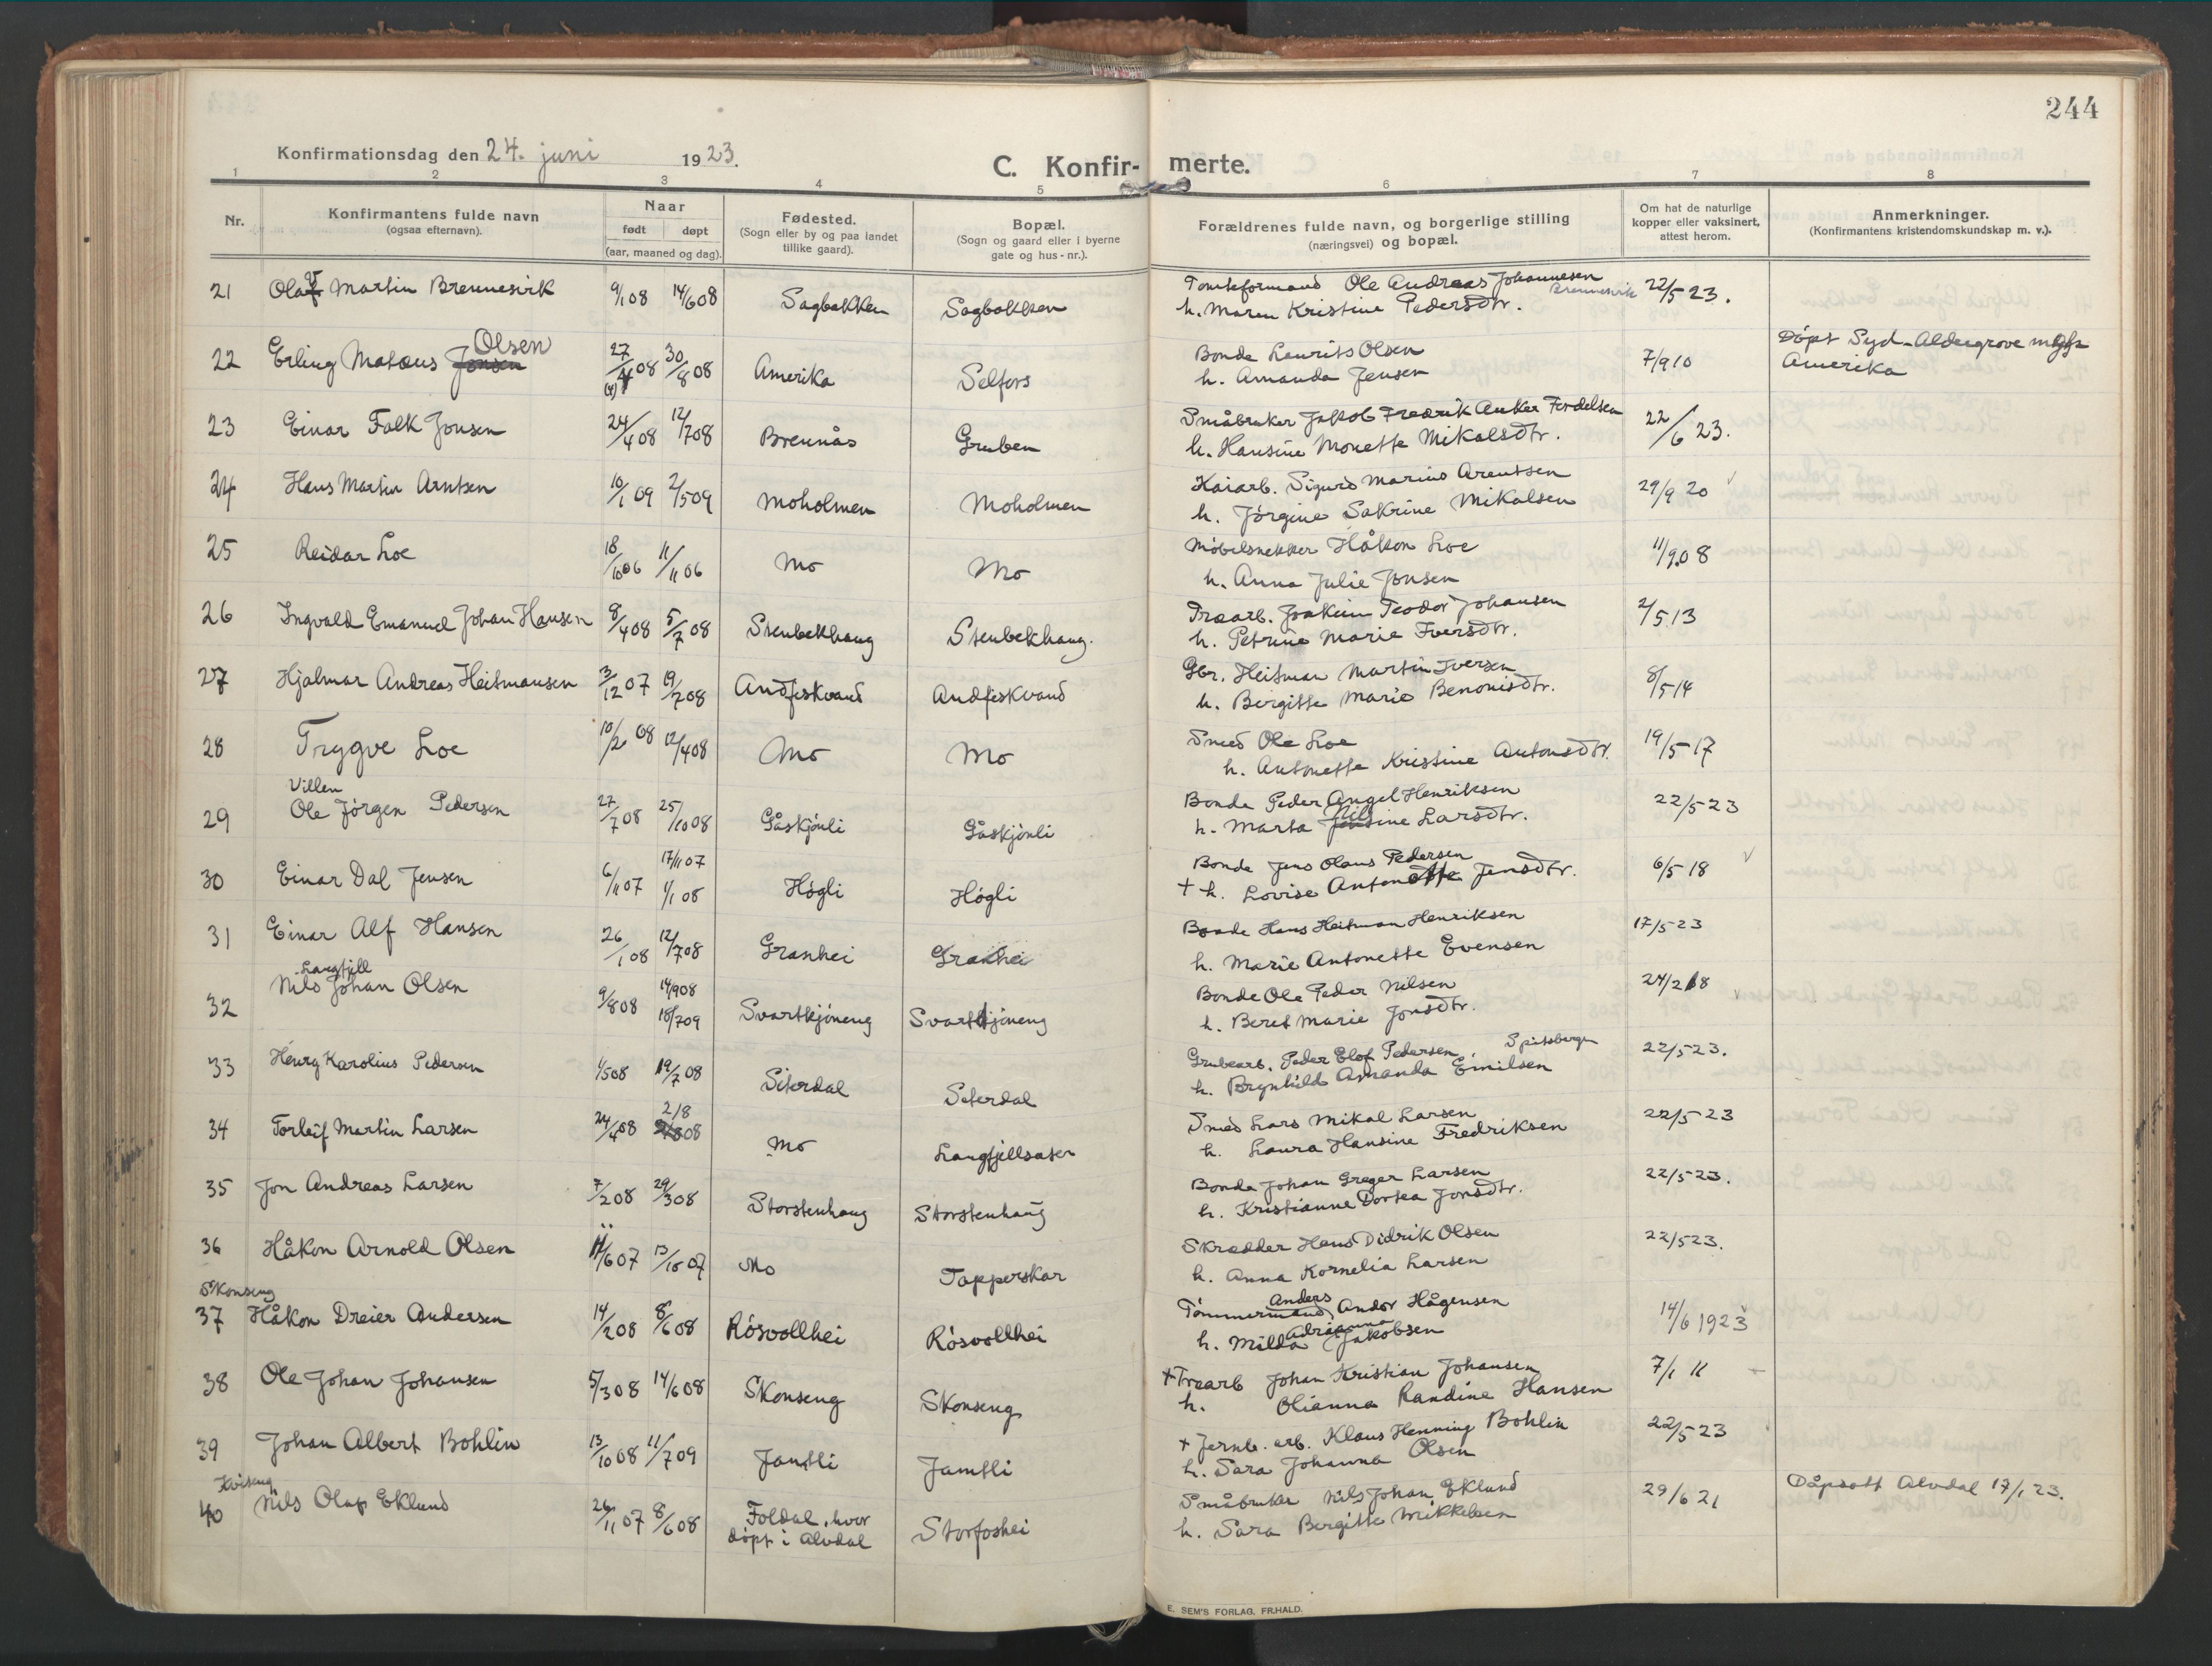 244
Konfirmationsdag den 24. juni 1923.
C. Konfir- merte.
1 2 3 4 5 6 7 8
Nr.
Konfirmantens fulde navn
(ogsaa efternavn).
Naar
født døpt
(aar, maaned og dag).
Fødested.
(Sogn eller by og paa landet
tillike gaard).
Bopæl.
(Sogn og gaard eller i byerne
gate og hus-nr.).
Forældrenes fulde navn, og borgerlige stilling
(næringsvei) og bopæl.
Om hat de naturlige
kopper eller vaksinert,
attest herom.
Anmerkninger.
(Konfirmantens kristendomskundskap m. v.).
21 Olaf Martin Brennesvik 9/1 08 14/6 08 Sagbakken Sagbakken Tomteformand Ole Andreas Johannesen Brennesvik 22/5 23.
h. Maren Kristine Pedersdtr.
22 Erling Matæus Jonsen Olsen 27/4 08 30/8 08 Amerika Selfors Bonde Laurits Olsen 7/9 10 Døpt Syd-Aldergrove
h. Amanda Jensen Amerika
23 Einar Falk Jonsen 24/4 08 12/7 08 Brennås Gruben Småbruker Jakob Fredrik Anker 22/6 23.
h. Hansine Monette Mikalsdtr.
24 Hans Martin Arntsen 10/1 09 2/5 09 Moholmen Moholmen Kaiarb. Sigurd Marius Arentsen 29/9 20
h. Jørgine Sakrine Mikalsen
25 Reidar Loe 18/10 06 11/11 06 Mo Mo Møbelsnekker Håkon Loe 11/9 08
h. Anna Julie Jonsen
26 Ingvald Emanuel Johan Hansen 8/4 08 5/7 08 Stenbekhaug Stenbekhaug. Træarb. Joakim Teodor Johansen 2/5 13
h. Petrine Marie Iversdtr.
27 Hjalmar Andreas Heitmansen 3/12 07 19/2 08 Andfiskvand Andfiskvand Gbr. Heitman Martin Iversen 8/5 14
h. Birgitte Marie Benonisdtr.
28 Trygve Loe 10/2 08 12/4 08 Mo Mo Smed Ole Loe 19/5 17
h. Antonette Kristine Antonsdtr.
Villen
29 Ole Jørgen Pedersen 27/7 08 25/10 08 Gåskjønli Gåskjønli Bonde Peder Angel Henriksen 22/5 23
h. Marta Jensine Nilsine Larsdtr.
17/11 07
30 Einar Dal Jensen 6/11 07 1/1 08 Høgli Høgli Bonde Jens Olaus Pedersen 6/5 18
+ h. Lovise Antonette Jensdtr.
31 Einar Alf Hansen 26/1 08 12/7 08 Granhei Granhei Bonde Hans Heitman Henriksen 17/5 23
h. Marie Antonette Evensen
Langfjell
32 Nils Johan Olsen 9/8 08 14/9 08 18/7 09 Svartkjøneng Svartkjøneng Bonde Ole Peder Nilsen 24/2 18
h. Beret Marie Jonsdtr.
33 Henry Karolius Pedersen 1/5 08 19/7 08 Siterdal Seterdal Grubearb. Peder Elof Pedersen, Spitsbergen 22/5 23.
h. Brynhild Amanda Emilsen
34 Torleif Martin Larsen 24/4 08 2/8 08 Mo Langfjellsaser Smed Lars Mikal Larsen 22/5 23
h. Laura Hansine Fredriksen
35 Jon Andreas Larsen 7/2 08 29/3 08 Storstenhaug Storstenhaug Bonde Johan Greger Larsen 22/5 23.
h. Kristianne Dortea Jonsdtr.
36 Håkon Arnold Olsen 11/6 07 13/10 07 Mo Tapperskar Skrædder Hans Didrik Olsen 22/5 23.
h. Anna Kornelia Larsen
Skonseng
37 Håkon Dreier Andersen 14/2 08 8/6 08 Røsvollhei Røsvollhei Tømmermand Anders Andor Hågensen 14/6 1923
h. Milda Adrianna Jakobsen
38 Ole Johan Johansen 5/3 08 14/6 08 Skonseng Skonseng + Træarb Johan Kristian Johansen 7/1 11
h. Olianna Randine Hansen
39 Johan Albert Bohlin 13/10 08 11/7 09 Jamtli Jamtli + Jernb. arb. Klaus Henning Bohlin 22/5 23
h. Sara Johanna Olsen
40 Nils Olap Eklund 26/11 07 8/6 08 Foldal, hvor døpt i Alvdal Storfoshei Småbruker Nils Johan Eklund 29/6 21 Dåpsatt Alvdal 17/1 23.
h. Sara Bergitte Mikkelsen
E. SEM'S FORLAG, FR.HALD.